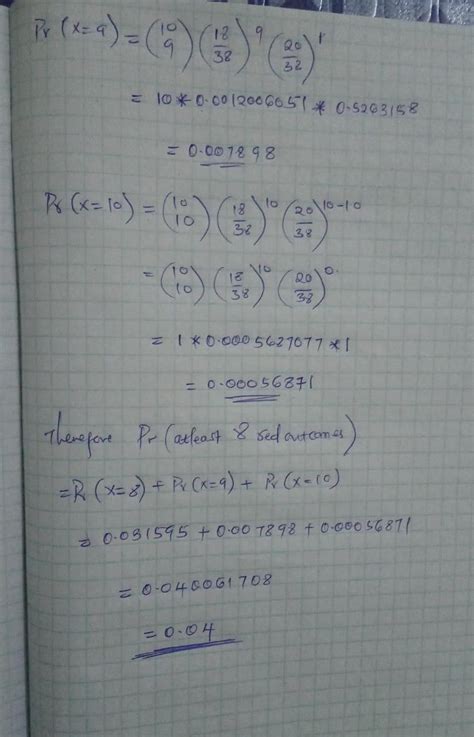 Pr (x=9) = (10 9) (18/38)^9 (20/38)^1
= 10 * 0.0012006051 * 0.5263158
= 0.007898
Pr (x=10) = (10 10) (18/38)^10 (20/38)^10-10
= (10 10) (18/38)^10 (20/38)^0
= 1 * 0.0005687077 * 1
= 0.00056871
Therefore Pr (atleast 8 red outcomes)
= Pr (x=8) + Pr (x=9) + Pr (x=10)
= 0.031595 + 0.007898 + 0.00056871
= 0.040061708
= 0.04